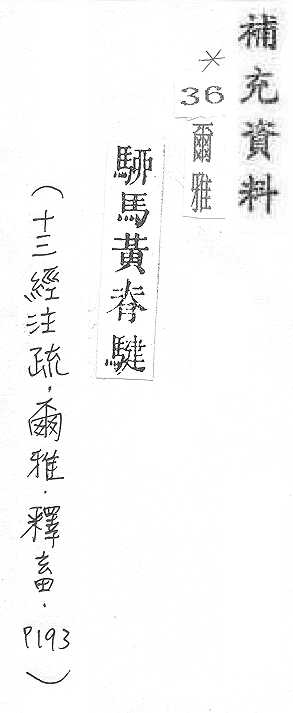 補充資料
*
36 爾雅
駵馬黃脊騝
(十三經注疏.爾雅.釋畜.P193)